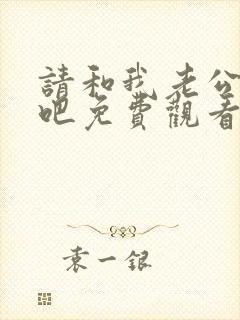 請和我老公
吧免費觀看
袁一銀